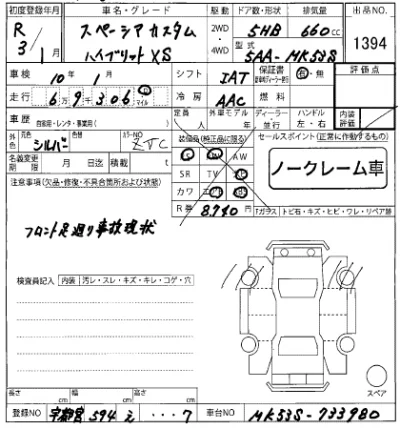 初度登録年月 車名・グレード 駆動 ドア数・形状 排気量 出品NO.
R3年1月 スペーシアカスタム 2WD・4WD 5HB 660cc 1394
ハイブリットXS 型式 5AA-MK53S
車検 10年1月 シフト IAT 保証書 有・無 評価点
走行 6万9千306 マイル 冷房 AAC 燃料
車歴 自家用・レンタ・事業用( ) 定員 人 外車モデル 年 ディーラー・並行 ハンドル 左・右 内装評価
外色 元色 シルバー 色替 カラーNO ZJC 装備品(純正品に限る) セールスポイント(正常に作動するもの)
名義変更期限 月 日迄 積載 t AW ノークレーム車
注意事項(欠品・修復・不具合箇所および状態) SR TV
カワ
R券 8,740円 Fガラス トビ石・キズ・ヒビ・ワレ・リペア跡
フロント足廻り事故現状
検査員記入 内装 汚レ・スレ・キズ・キレ・コゲ・穴
スペア
長さ cm 幅 cm 高さ cm
登録NO 宇都宮 594 え ・・・7 車台NO MK53S-733980